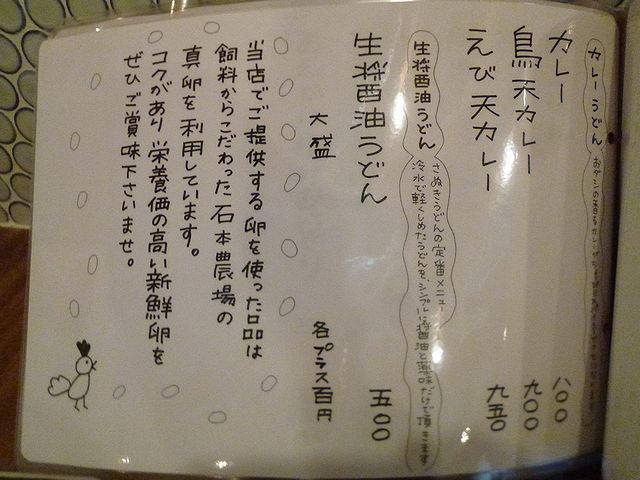 カレーうどん
おダシの香るカレー
カレー 八〇〇
鳥天カレー 九〇〇
えび天カレー 九五〇
生醤油うどん
さぬきうどんの定番メニュー
冷水で軽くしめたうどんを、シンプルに醤油と薬味だけで頂きます
生醤油うどん 五〇〇
大盛 各プラス百円
当店でご提供する卵を使った品は
飼料からこだわった石本農場の
真卵を利用しています。
コクがあり栄養価の高い新鮮卵を
ぜひご賞味下さいませ。